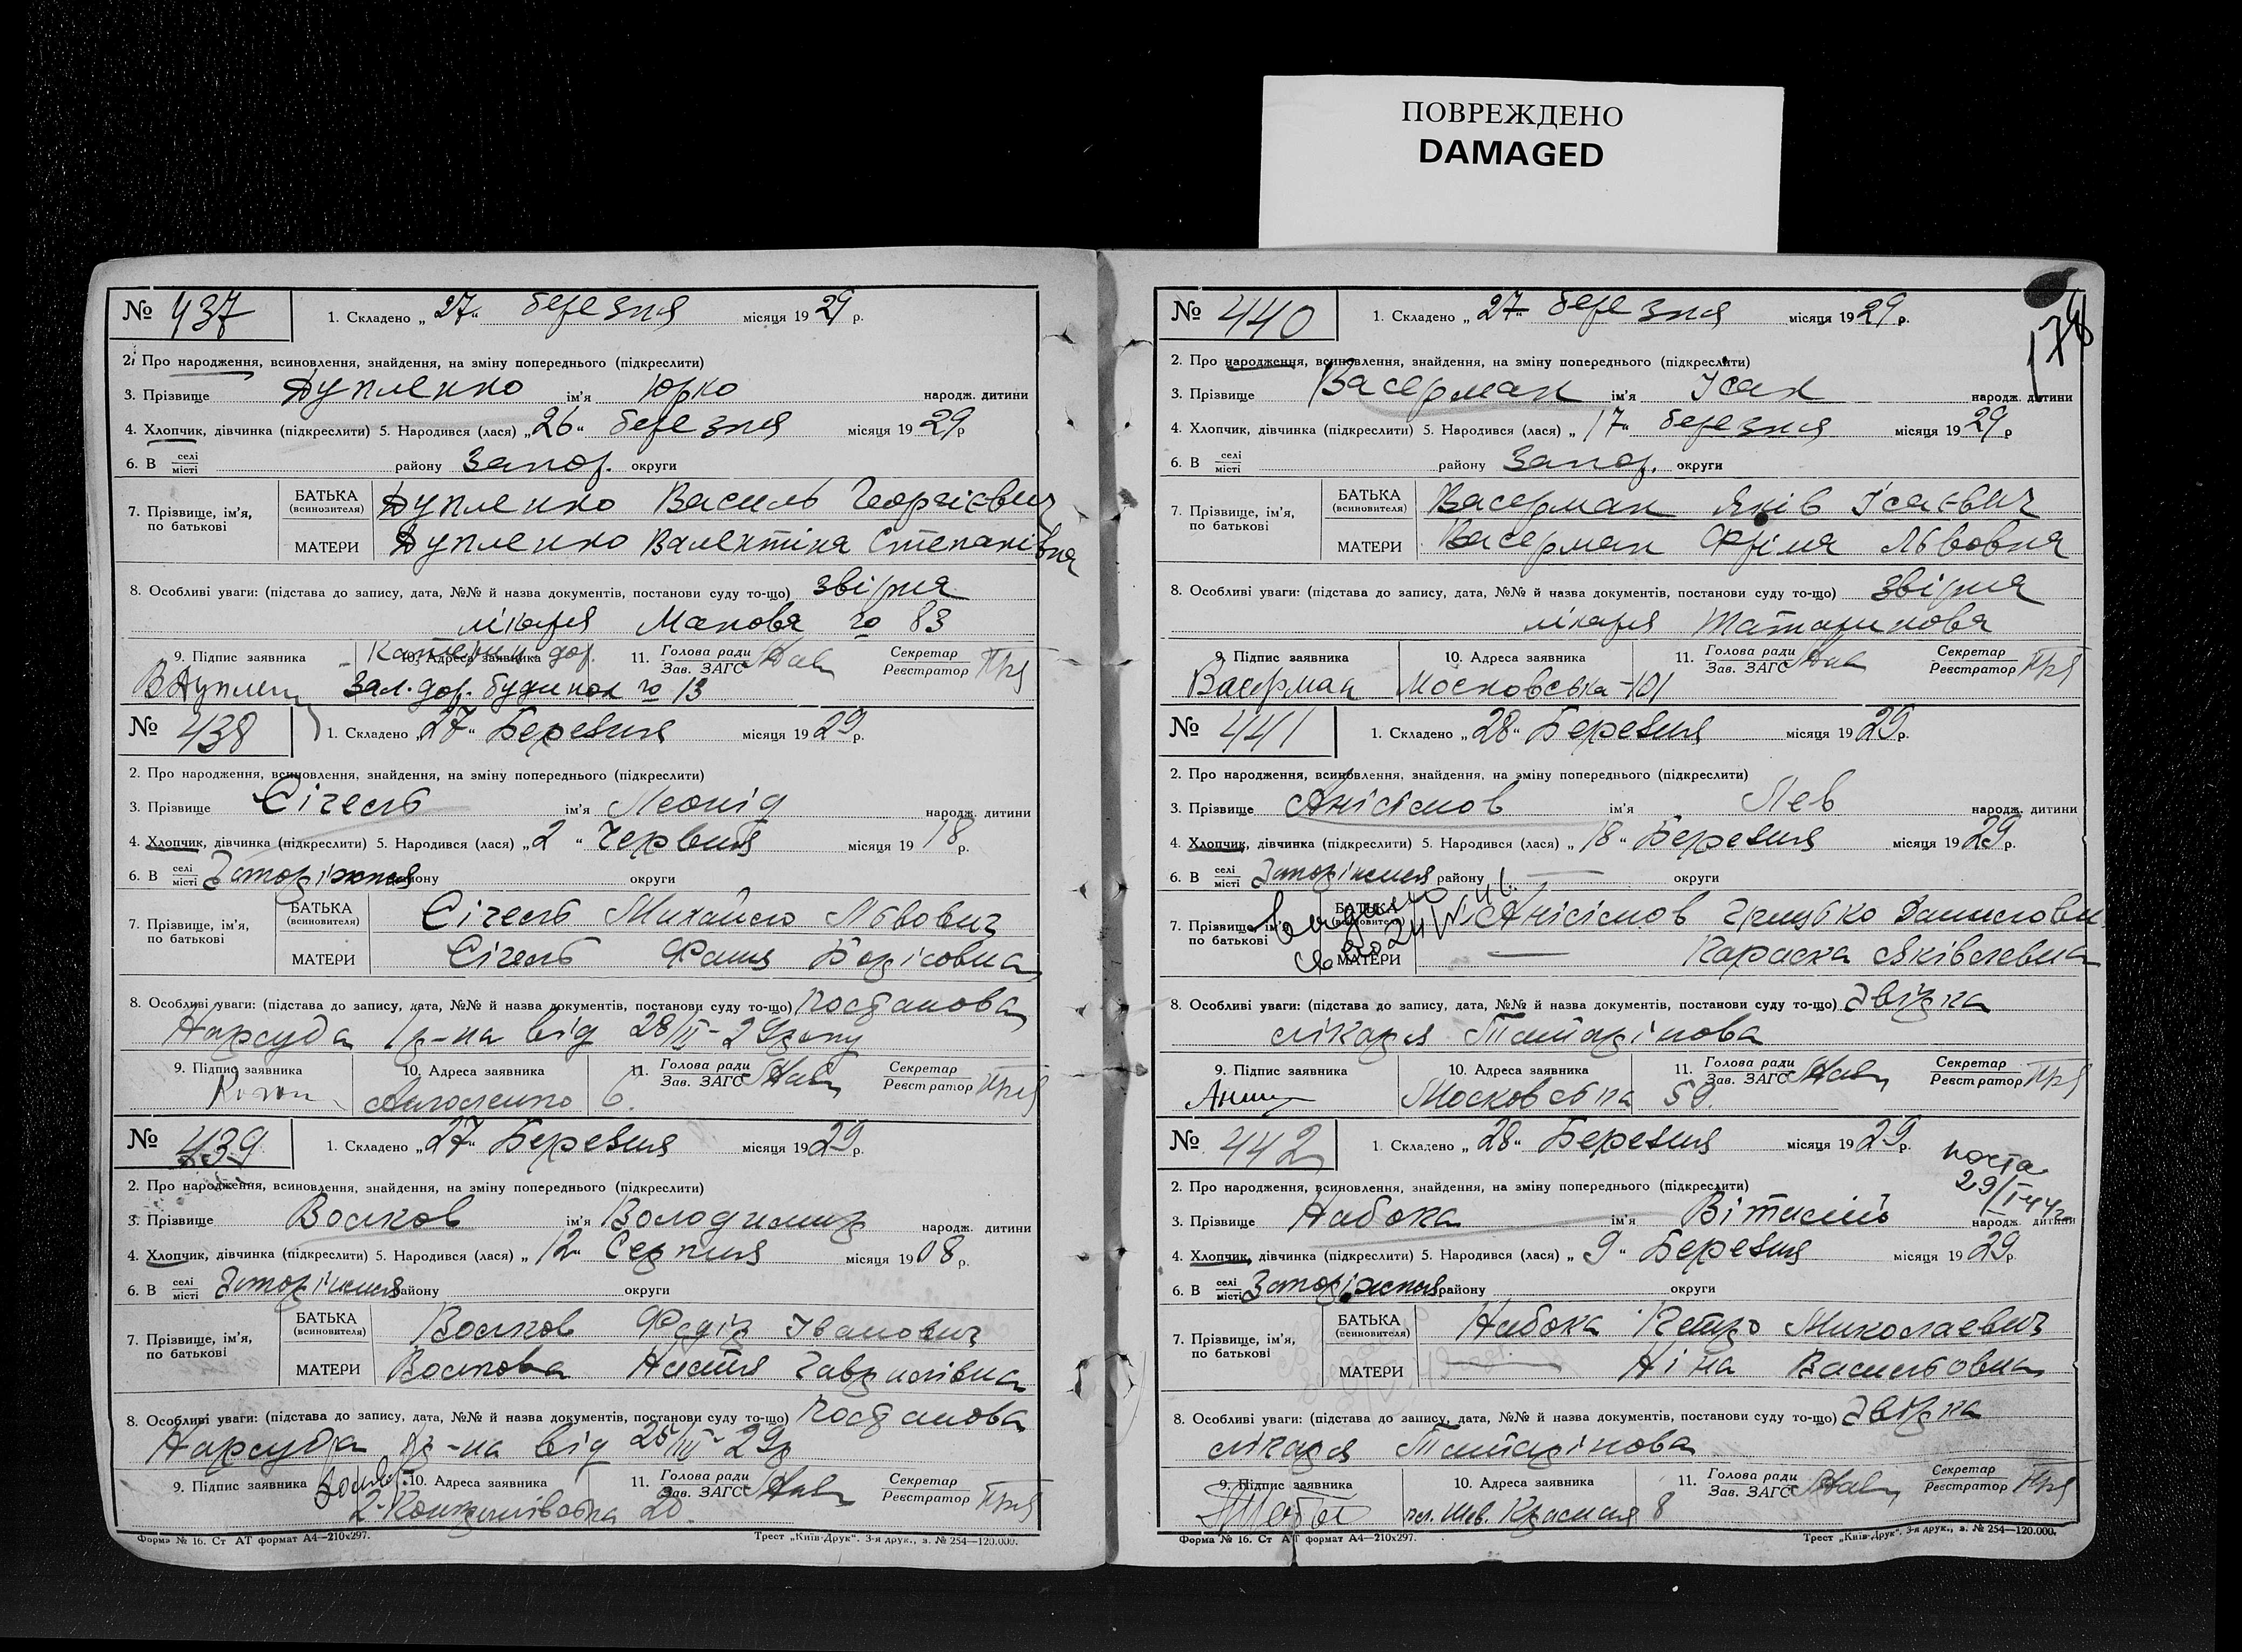 ПОВРЕЖДЕНО
DAMAGED
№ 437 1. Складено „27“ березня місяця 1929 р.
2. Про народження, всиновлення, знайдення, на зміну попереднього (підкреслити)
3. Прізвище Дупленко ім'я Юрко народж. дитини
4. Хлопчик, дівчинка (підкреслити) 5. Народився (лася) „26“ березня місяця 1929 р
6. В селі місті району Запор. округи
7. Прізвище, ім'я, по батькові
БАТЬКА (всиновителя) Дупленко Василь Георгієвич
МАТЕРИ Дупленко Валентіна Степанівна
8. Особливі уваги: (підстава до запису, дата, №№ й назва документів, постанови суду то-що) звірня
лікаря Манова 83
9. Підпис заявника 10. Адреса заявника 11. Голова ради Зав. ЗАГС Секретар Реєстратор
Зал. дор. будинок 13
№ 438 1. Складено „27“ Березня місяця 1929 р.
2. Про народження, всиновлення, знайдення, на зміну попереднього (підкреслити)
3. Прізвище Сігель ім'я Леонід народж. дитини
4. Хлопчик, дівчинка (підкреслити) 5. Народився (лася) „2“ Червня місяця 1918 р.
6. В селі місті Запоріжжя району округи
7. Прізвище, ім'я, по батькові
БАТЬКА (всиновителя) Сігель Михайло Львович
МАТЕРИ Сігель Фаня Борісовна
8. Особливі уваги: (підстава до запису, дата, №№ й назва документів, постанови суду то-що) Постанова
Нарсуда 1 р-на від 28/III-29 року
9. Підпис заявника 10. Адреса заявника 11. Голова ради Зав. ЗАГС Секретар Реєстратор
6.
№ 439 1. Складено „27“ Березня місяця 1929 р.
2. Про народження, всиновлення, знайдення, на зміну попереднього (підкреслити)
3. Прізвище Волков ім'я Володимир народж. дитини
4. Хлопчик, дівчинка (підкреслити) 5. Народився (лася) „12“ Серпня місяця 1908 р.
6. В селі місті Запоріжжя району округи
7. Прізвище, ім'я, по батькові
БАТЬКА (всиновителя) Волков Фядір Іванович
МАТЕРИ Волкова Настя Гаврилівна
8. Особливі уваги: (підстава до запису, дата, №№ й назва документів, постанови суду то-що) Постанова
Нарсуда р-на від 25/III-29р
9. Підпис заявника 10. Адреса заявника 11. Голова ради Зав. ЗАГС Секретар Реєстратор
20.
Форма № 16. Ст АТ формат А4—210х297. Трест „Київ-Друк“. 3-я друк., з. № 254—120.000.
178
№ 440 1. Складено „27“ березня місяця 1929 р.
2. Про народження, всиновлення, знайдення, на зміну попереднього (підкреслити)
3. Прізвище Васерман ім'я Ісак народж. дитини
4. Хлопчик, дівчинка (підкреслити) 5. Народився (лася) „17“ березня місяця 1929 р
6. В селі місті району Запор. округи
7. Прізвище, ім'я, по батькові
БАТЬКА (всиновителя) Васерман Яків Ісаєвич
МАТЕРИ Васерман Фріма Львовна
8. Особливі уваги: (підстава до запису, дата, №№ й назва документів, постанови суду то-що) звірня
лікаря Татарінова
9. Підпис заявника 10. Адреса заявника 11. Голова ради Зав. ЗАГС Секретар Реєстратор
Васерман Московська-101
№ 441 1. Складено „28“ Березня місяця 1929 р.
2. Про народження, всиновлення, знайдення, на зміну попереднього (підкреслити)
3. Прізвище Анісімов ім'я Лев народж. дитини
4. Хлопчик, дівчинка (підкреслити) 5. Народився (лася) „18“ Березня місяця 1929 р.
6. В селі місті Запоріжжя району — округи
7. Прізвище, ім'я, по батькові
БАТЬКА (всиновителя) Анісімов Данилови
МАТЕРИ — Параска Яківлевна
8. Особливі уваги: (підстава до запису, дата, №№ й назва документів, постанови суду то-що) Звірка
лікаря Татарінова
9. Підпис заявника 10. Адреса заявника 11. Голова ради Зав. ЗАГС Секретар Реєстратор
Московська 59.
№ 442 1. Складено „28“ Березня місяця 1929 р.
2. Про народження, всиновлення, знайдення, на зміну попереднього (підкреслити)
3. Прізвище Набока ім'я Віталій народж. дитини
4. Хлопчик, дівчинка (підкреслити) 5. Народився (лася) „9“ Березня місяця 1929 р.
6. В селі місті Запоріжжя району округи
7. Прізвище, ім'я, по батькові
БАТЬКА (всиновителя) Набока Петро Миколаевич
МАТЕРИ — Ніна Васильовна
8. Особливі уваги: (підстава до запису, дата, №№ й назва документів, постанови суду то-що) Звірка
лікаря Татарінова
9. Підпис заявника 10. Адреса заявника 11. Голова ради Зав. ЗАГС Секретар Реєстратор
Красная 8
Форма № 16. Ст АТ формат А4—210х297. Трест „Київ-Друк“. 3-я друк., з. № 254—120.000.